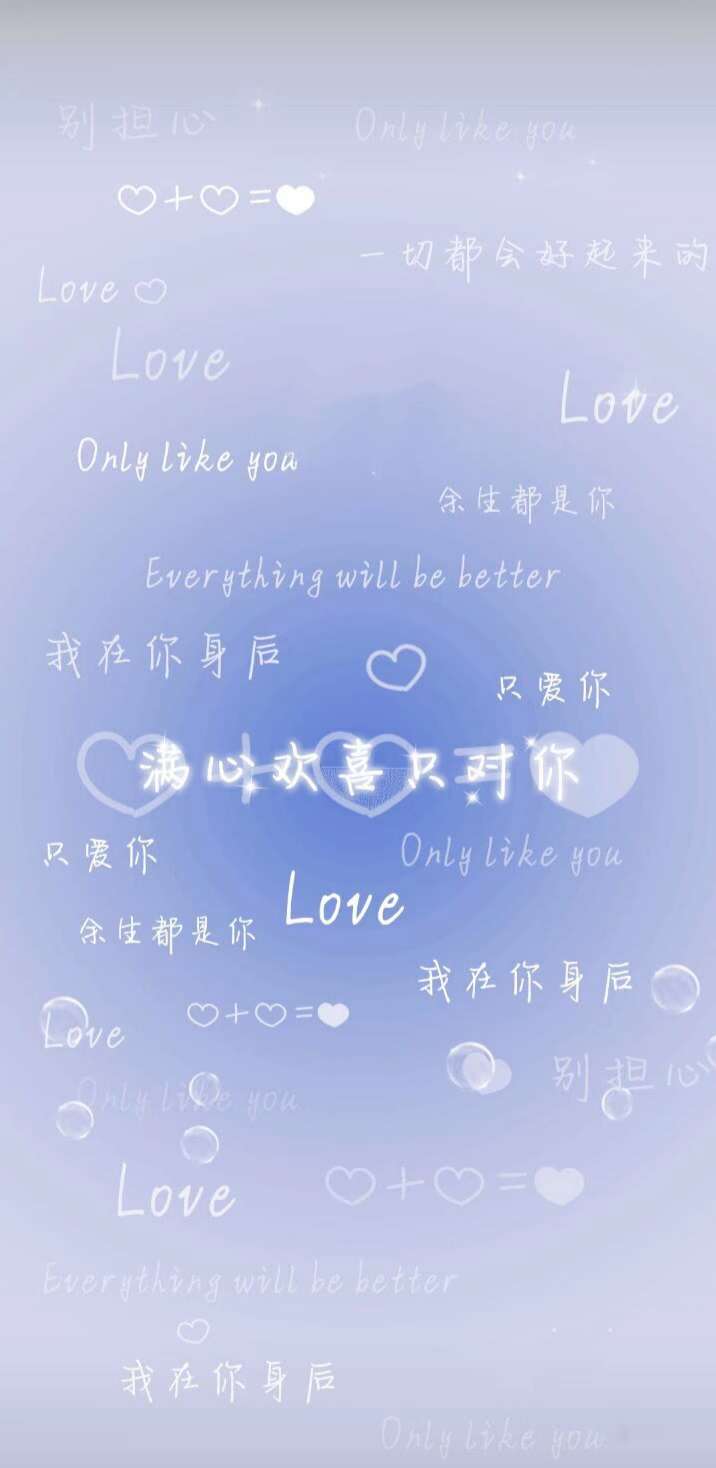 别担心
Only like you
♡+♡=♥
一切都会好起来的
Love ♡
Love
Love
Only like you
余生都是你
Everything will be better
我在你身后
只爱你
满心欢喜只对你
♡+♡=♥
只爱你
Only like you
Love
余生都是你
我在你身后
♡+♡=♥
Love
别担心
Only like you
Love
♡+♡=♥
Everything will be better
我在你身后
Only like you